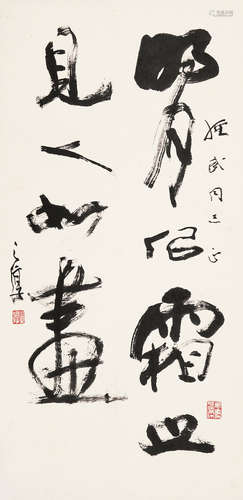 經武同志正
明月似霜照
見人如畫